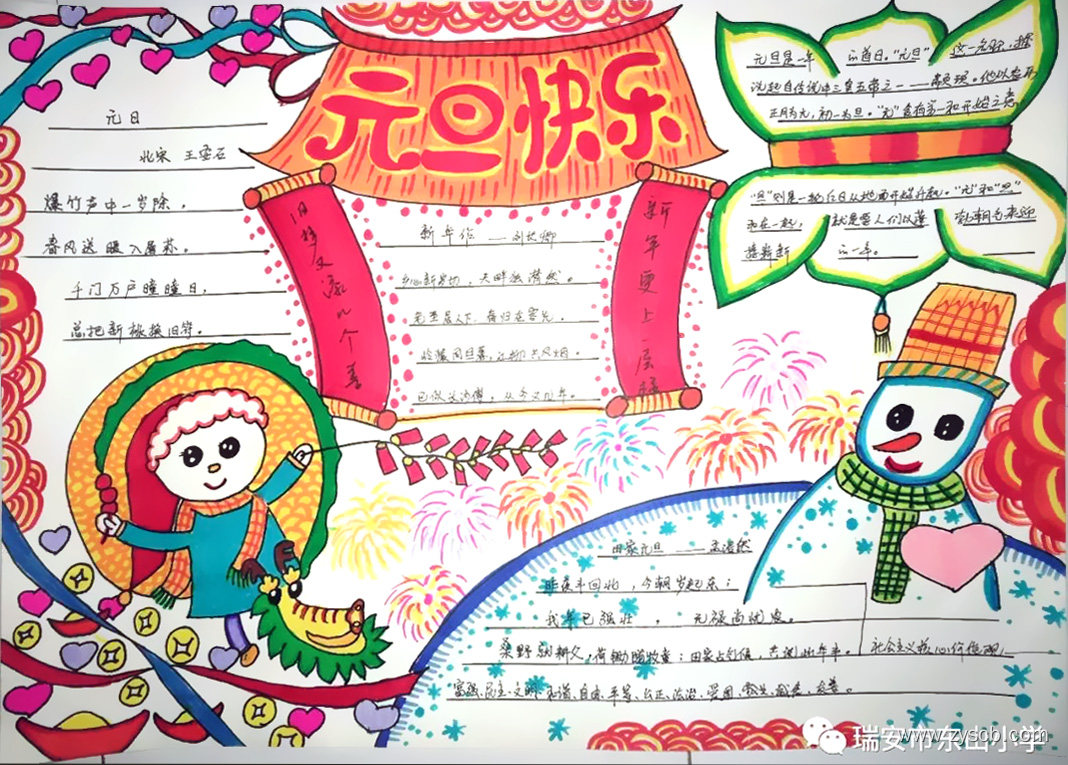 元旦快乐
元日
北宋 王安石
爆竹声中一岁除，
春风送暖入屠苏。
千门万户曈曈日，
总把新桃换旧符。
旧
新年更上一层楼
新年作 ——刘长卿
乡心新岁切，天畔独潸然。
老至居人下，春归在客先。
岭猿同旦暮，江柳共风烟。
已似长沙傅，从今又几年。
元旦是一年的首日。"元旦"这一
说起自传说中三皇五帝之一——颛顼。他以农历
正月为元，初一为旦。"元"含有第一和开始之意
"旦"则是一轮红日从地面开始升起。"元"和"旦"
和在一起，就是要人们以蓬勃朝气来迎
接崭新的一年。
田家元旦 ——孟浩然
昨夜斗回北，今朝岁起东；
我年已强壮，无禄尚忧农。
桑野就耕父，荷锄随牧童；田家占气候，共说此年丰。
社会主义核心价值观，
富强、民主、文明、和谐、自由、平等、公正、法治、爱国、敬业、诚信、友善。
瑞安市东山小学
www.zyscbl.com